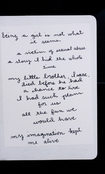 being a girl is not what
it seems.
a victim of sexual abuse
a story I had the whole
time
my little brother, I swear,
died before he had
a chance to live
I had such plans
for us
all the fun we
would have
my imagination kept
me alive